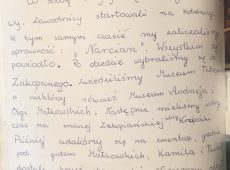 wy. Zawodnicy startowali na Kotelnicy.
W tym samym czasie my zaliczaliśmy
sprawność: "Narciarz". Wszystkim się
powiodło. Po obiedzie wybraliśmy się do
Zakopanego. Zwiedziliśmy Muzeum
a niektórzy również Muzeum Andrzeja i
Olgi Małkowskich. Następnie mieliśmy wolny
czas na znanej Zakopiańskiej Krupówki
Później udaliśmy się na cmentarz, gdzie
pod grobem Małkowskich, Kamila i